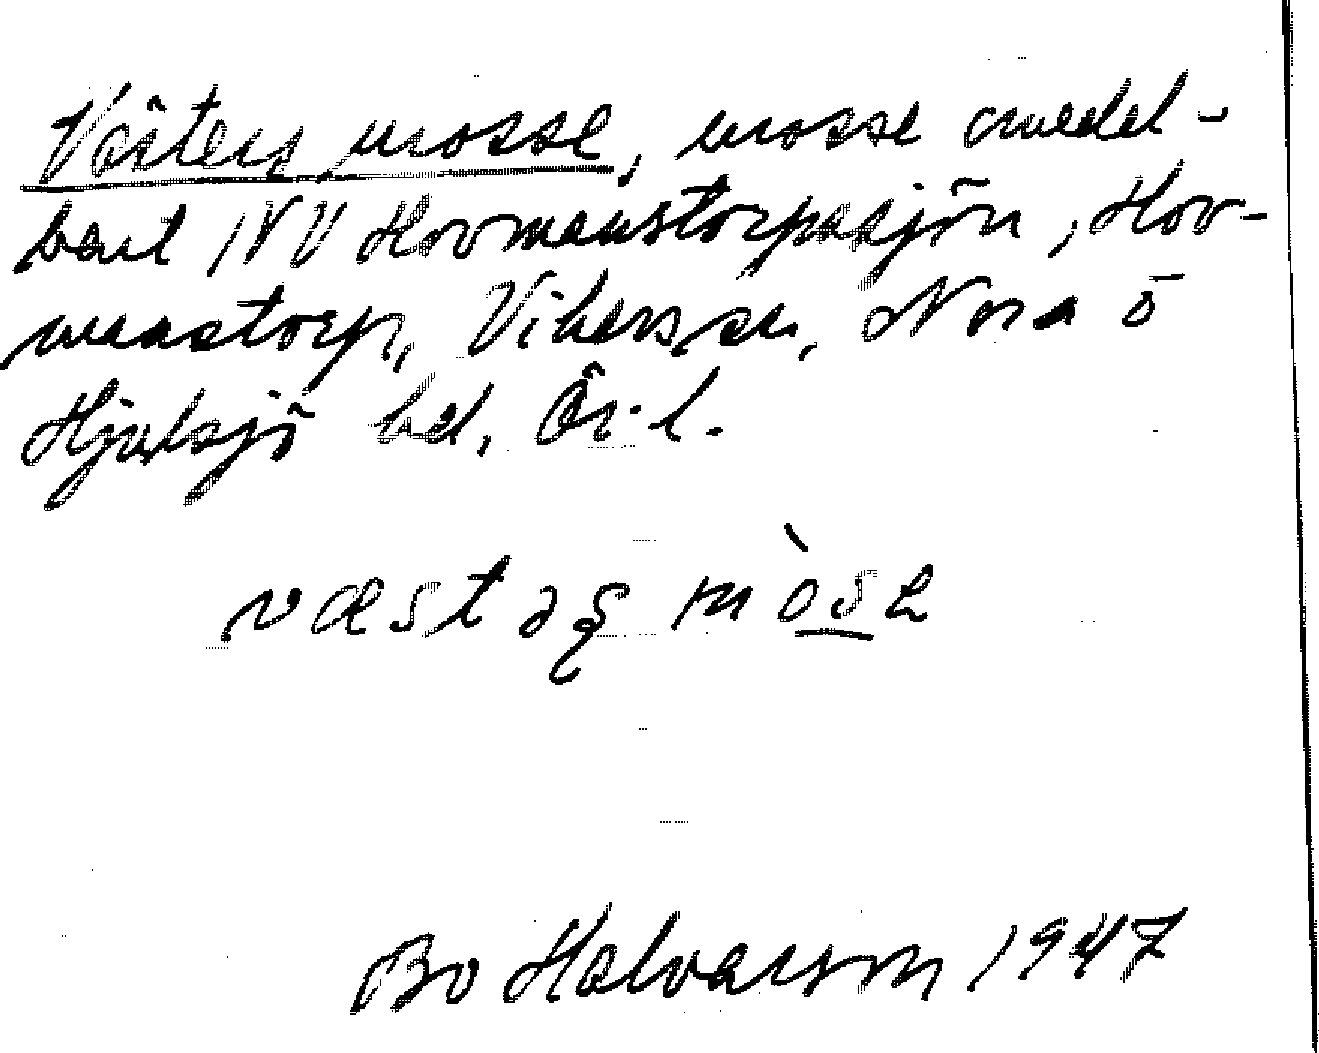 Västers mosse, mosse omedel-
bart NV Hovmanstorpasjön, Hov-
manstorp, Vikers sn, Nora o
Hjulsjö bd, Ör. l.
væstəʂ mòsə
Bo Halvarson 1947